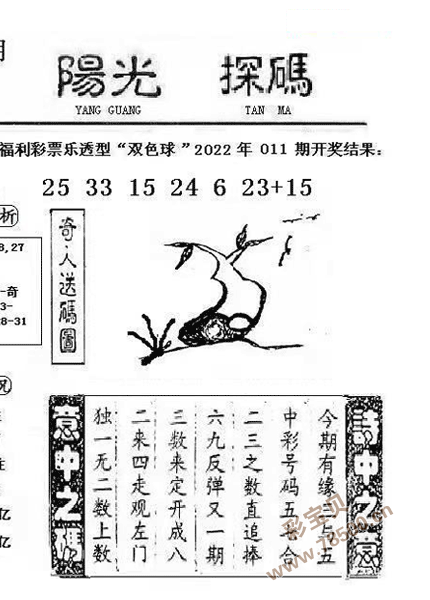 期
陽光 探碼
YANG GUANG TAN MA
福利彩票乐透型“双色球”2022年011期开奖结果:
25 33 15 24 6 23+15
析
8,27
-奇
3-
28-31
况
奇人送碼圖
詩中之意
今期有缘三与五
中彩号码五七合
二三之数直追捧
六九反弹又一期
三数来定开成八
二来四走观左门
独一无二数上数
意中之碼
住
亿
亿
彩宝贝
www.78500.cn